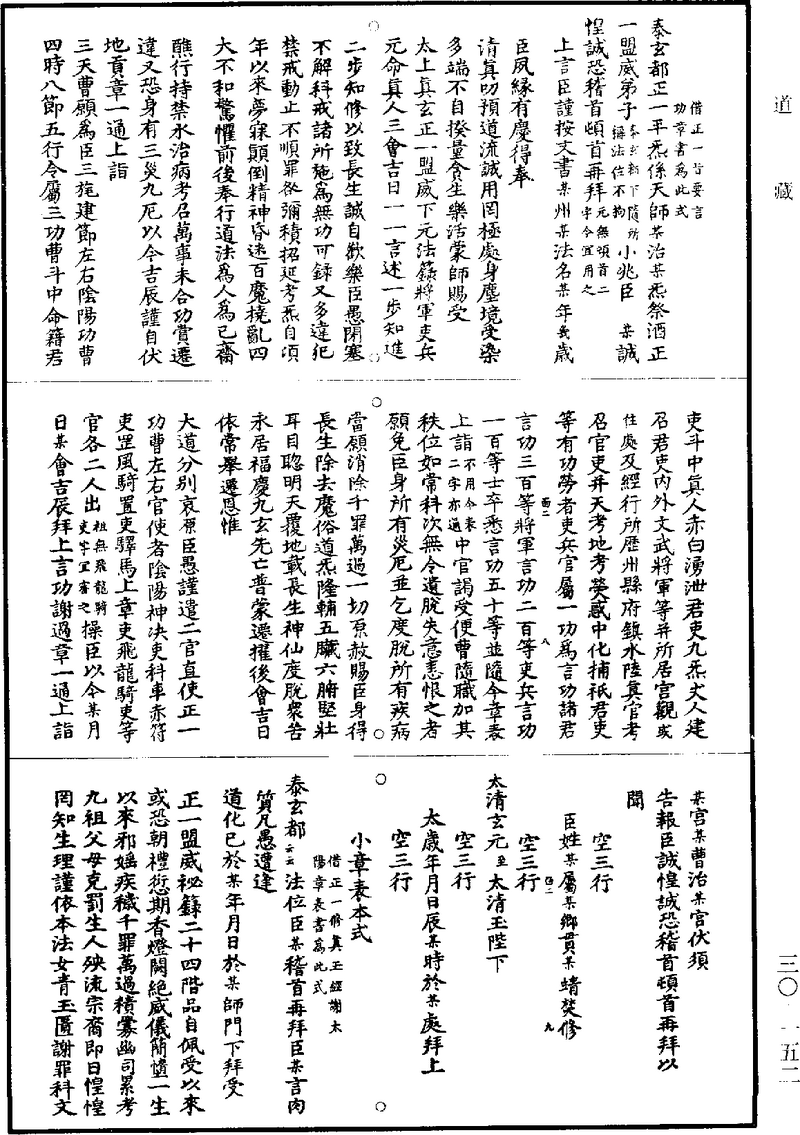 道藏
借正一旨要言
功章書為此式
泰玄都正一平炁係天師某治某炁祭酒正
一盟威弟子泰玄都下隨所稱法位不拘小兆臣某誠
惶誠恐稽首頓首再拜元無頓首二字今宜用之
上言臣謹按文書某州某法名某年幾歲
臣夙緣有慶得奉
清真叨預道流誠用罔極處身塵境受染
多端不自揆量貪生樂活蒙師賜受
太上真玄正一盟威下元法籙將軍吏兵
元命真人三會吉日一一言述一步知進
二步知修以致長生誠自歡樂臣愚閉塞
不解科戒諸所施為無功可錄又多違犯
禁戒動止不順罪咎彌積招延考炁自頃
年以來夢寐顛倒精神昏迷百魔撓亂四
大不和驚懼前後奉行道法為人為已齋
醮行持禁水治病考召萬事未合功賞遷
違又恐身有三災九厄以今吉辰謹自伏
地貢章一通上詣
三天曹願為臣三旌建節左右陰陽功曹
四時八節五行令屬三功曹斗中命籍君
吏斗中真人赤白湧泄君吏九炁丈人建
召君吏內外文武將軍等并所居宮觀或
住處及經行所歷州縣府鎮水陸真官考
召官吏并天考地考熒惑中化捕祇君吏
等有功勞者吏兵官屬一功為言功諸君
言功三百等將軍言功二百等吏兵言功
一百等士卒悉言功五十等並隨今章表
上詣不用今表二字亦通中官謁受便曹隨職加其
秩位如常科次無令遺脫失意恚恨之者
願免臣身所有災厄並乞度脫所有疾病
當願消除千罪萬過一切原赦賜臣身得
長生除去魔俗道炁隆輔五臟六腑堅壯
耳目聰明天覆地載長生神仙度脫眾苦
永居福慶九玄先亡普蒙遷擢後會吉日
依常舉遷恩惟
大道分別哀原臣愚謹遣二官直使正一
功曹左右官使者陰陽神決吏科車赤符
吏罡風騎置吏驛馬上章吏飛龍騎吏等
官各二人出祖無飛龍騎吏字宜審之操臣以今某月
日某會吉辰拜上言功謝過章一通上詣
某宮某曹治某宮伏須
告報臣誠惶誠恐稽首頓首再拜以
聞
空三行
臣姓某屬某鄉貫某靖焚修
空三行
太清玄元至太清玉陛下
空三行
太歲年月日辰某時於某處拜上
空三行
小章表本式
借正一修真王經謝太
陽章表書為此式
泰玄都云云法位臣某稽首再拜臣某言肉
質凡愚遭逢
道化已於某年月日於某師門下拜受
正一盟威祕籙二十四階品自佩受以來
或恐朝禮愆期香燈闕絕威儀簡墮一生
以來邪婬疾穢千罪萬過積纍幽司累考
九祖父母克罰生人殃流宗裔即日惶惶
罔知生理謹依本法女青玉匱謝罪科文
三〇一五二